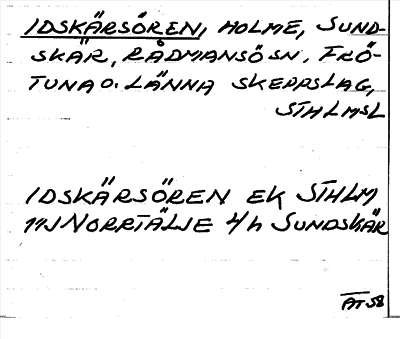 IDSKÄRSÖREN, HOLME, SUND-
SKÄR, RÅDMANSÖ SN, FRÖ-
TUNA O. LÄNNA SKEPPSLAG,
STHLMSL
IDSKÄRSÖREN EK STHLM
11J NORRTÄLJE 4/h SUNDSKÄR
AT 58